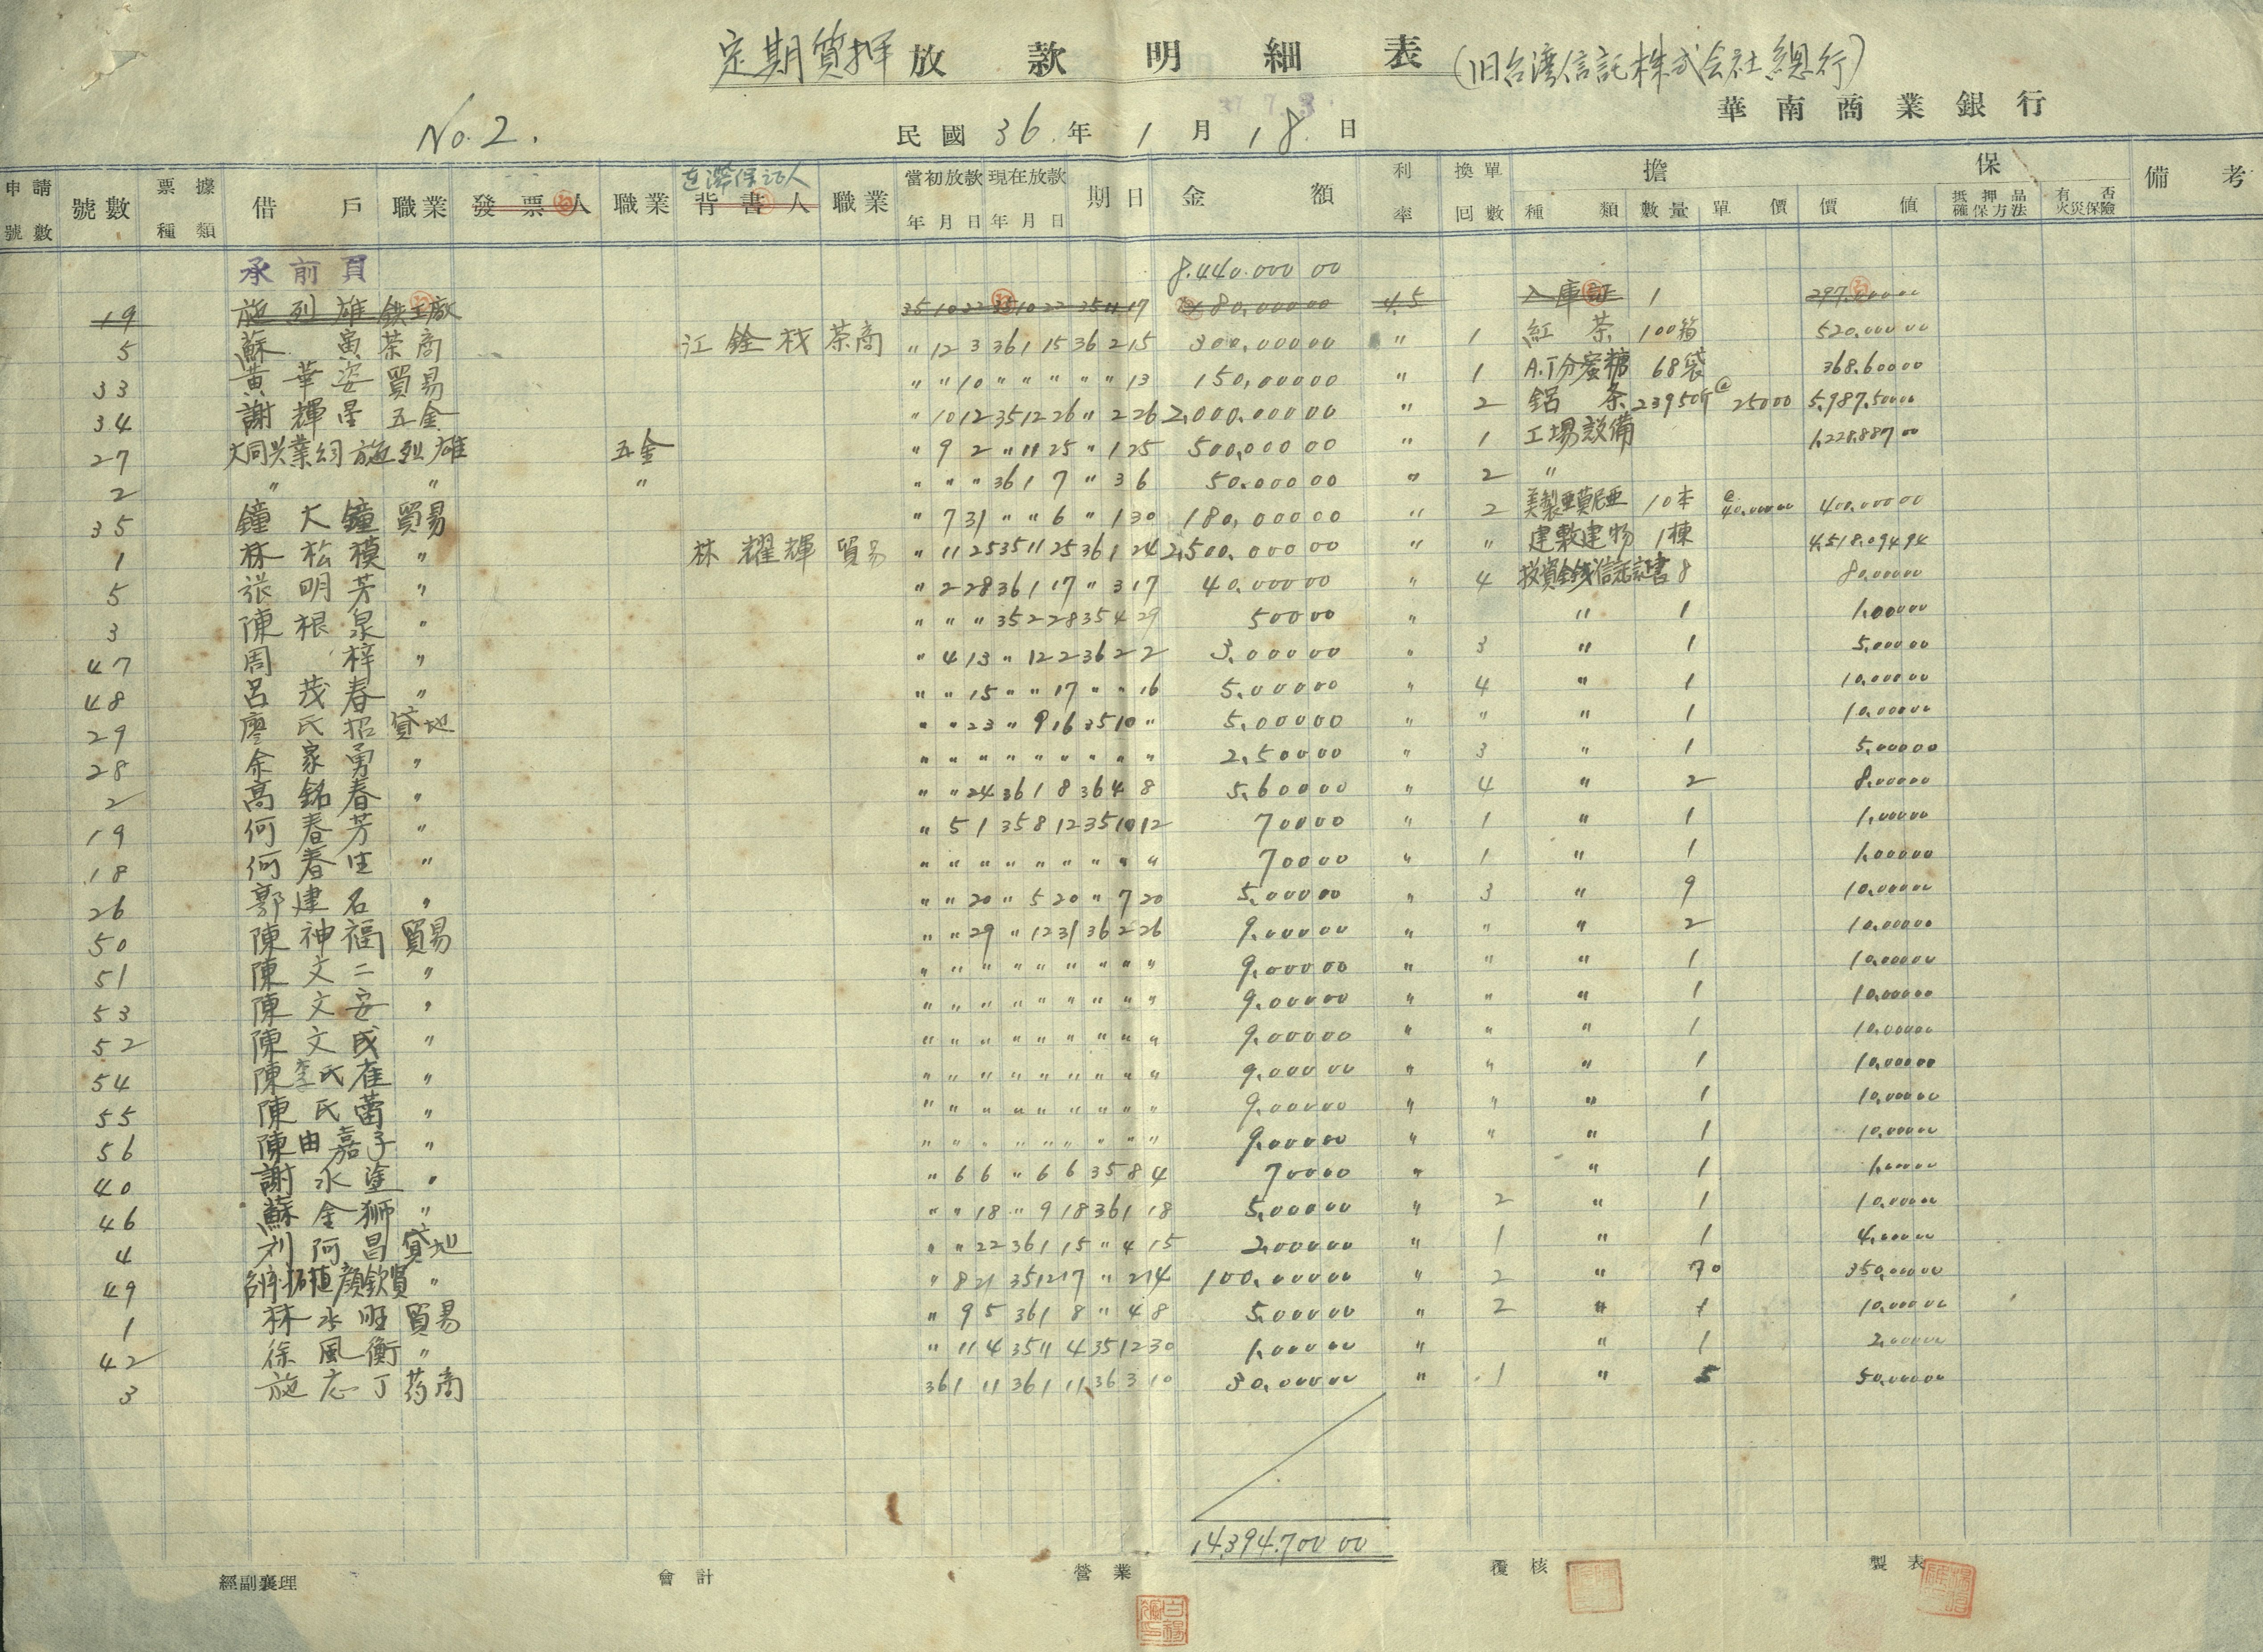 定期質押放款明細表(旧台湾信託株式会社總行)
華南商業銀行
No. 2.
民國 36. 年 1 月 18. 日
申請號數 號數 票據種類 借戶 職業 發票人 職業 連帯保証人 背書人 職業 當初放款年月日 現在放款年月日 期日 金額 利率 換單回數 擔保 種類 數量 單價 價值 抵押品確保方法 有否火災保險 備考
承前頁 8.440.000 00
19 施列雄 鉄工廠 35 10 22 35 10 22 35 11 17 80,000 00 4.5 入庫証 1 297,000 00
5 蘇寅 茶商 江銓枝 茶商 " 12 3 36 1 15 36 2 15 300,000 00 " 1 紅茶 100箱 520,000 00
33 黃華姿 貿易 " " 10 " " " " " 13 150,000 00 " 1 A.T分蜜糖 68袋 368,600 00
34 謝輝星 五金 " 10 12 35 12 26 " 2 26 2,000,000 00 " 2 鋁条 23950斤 @ 250 00 5,987,500 00
27 大同兴業公司施列雄 五金 " 9 2 " 11 25 " 1 25 500,000 00 " 1 工場設備 1,228,887 00
2 " " " " " " 36 1 7 " 3 6 50,000 00 " 2 "
35 鐘大鐘 貿易 " 7 31 " " 6 " 1 30 180,000 00 " 2 美製亜莫尼亜 10本 @ 40,000 00 400,000 00
1 林松模 " 林耀輝 貿易 " 11 25 35 11 25 36 1 24 2,500,000 00 " " 建敷建物 1棟 4,518,094 94
5 張明芳 " " 2 28 36 1 17 " 3 17 40,000 00 " 4 投資金銭信託証書 8 80,000 00
3 陳根泉 " " " " 35 2 28 35 4 29 500 00 " " 1 1,000 00
47 周梓 " " 4 13 " 12 2 36 2 2 3,000 00 " 3 " 1 5,000 00
48 呂茂春 " " " 15 " " 17 " " 16 5,000 00 " 4 " 1 10,000 00
29 廖氏招 貸地 " " 23 " 9 16 35 10 " 5,000 00 " " " 1 10,000 00
28 余家勇 " " " " " " " " " " 2,500 00 " 3 " 1 5,000 00
2 高銘春 " " " 24 36 1 8 36 4 8 5,600 00 " 4 " 2 8,000 00
19 何春芳 " " 5 1 35 8 12 35 10 12 700 00 " 1 " 1 1,000 00
18 何春生 " " " " " " " " " " 700 00 " 1 " 1 1,000 00
26 郭建名 " " " 20 " 5 20 " 7 20 5,000 00 " 3 " 9 10,000 00
50 陳神福 貿易 " " 29 " 12 31 36 2 26 9,000 00 " " " 2 10,000 00
51 陳文二 " " " " " " " " " " 9,000 00 " " " 1 10,000 00
53 陳文安 " " " " " " " " " " 9,000 00 " " " 1 10,000 00
52 陳文成 " " " " " " " " " " 9,000 00 " " " 1 10,000 00
54 陳李氏雀 " " " " " " " " " " 9,000 00 " " " 1 10,000 00
55 陳氏 " " " " " " " " " " 9,000 00 " " " 1 10,000 00
56 陳由嘉子 " " " " " " " " " " 9,000 00 " " " 1 10,000 00
40 謝水塗 " " 6 6 " 6 6 35 8 4 700 00 " " 1 1,000 00
46 蘇金獅 " " " 18 " 9 18 36 1 18 5,000 00 " 2 " 1 10,000 00
4 刘阿昌 貸地 " " 22 36 1 15 " 4 15 2,000 00 " 1 " 1 4,000 00
49 拓植顏欽賢 " " 8 21 35 12 17 " 2 14 100,000 00 " 2 " 70 350,000 00
1 林水旺 貿易 " 9 5 36 1 8 " 4 8 5,000 00 " 2 " 1 10,000 00
42 徐風衡 " " 11 4 35 11 4 35 12 30 1,000 00 " " 1 2,000 00
3 施志丁 药商 36 1 11 36 1 11 36 3 10 30,000 00 " 1 " 5 50,000 00
14,394,700 00
經副襄理 會計 營業 覆核 製表